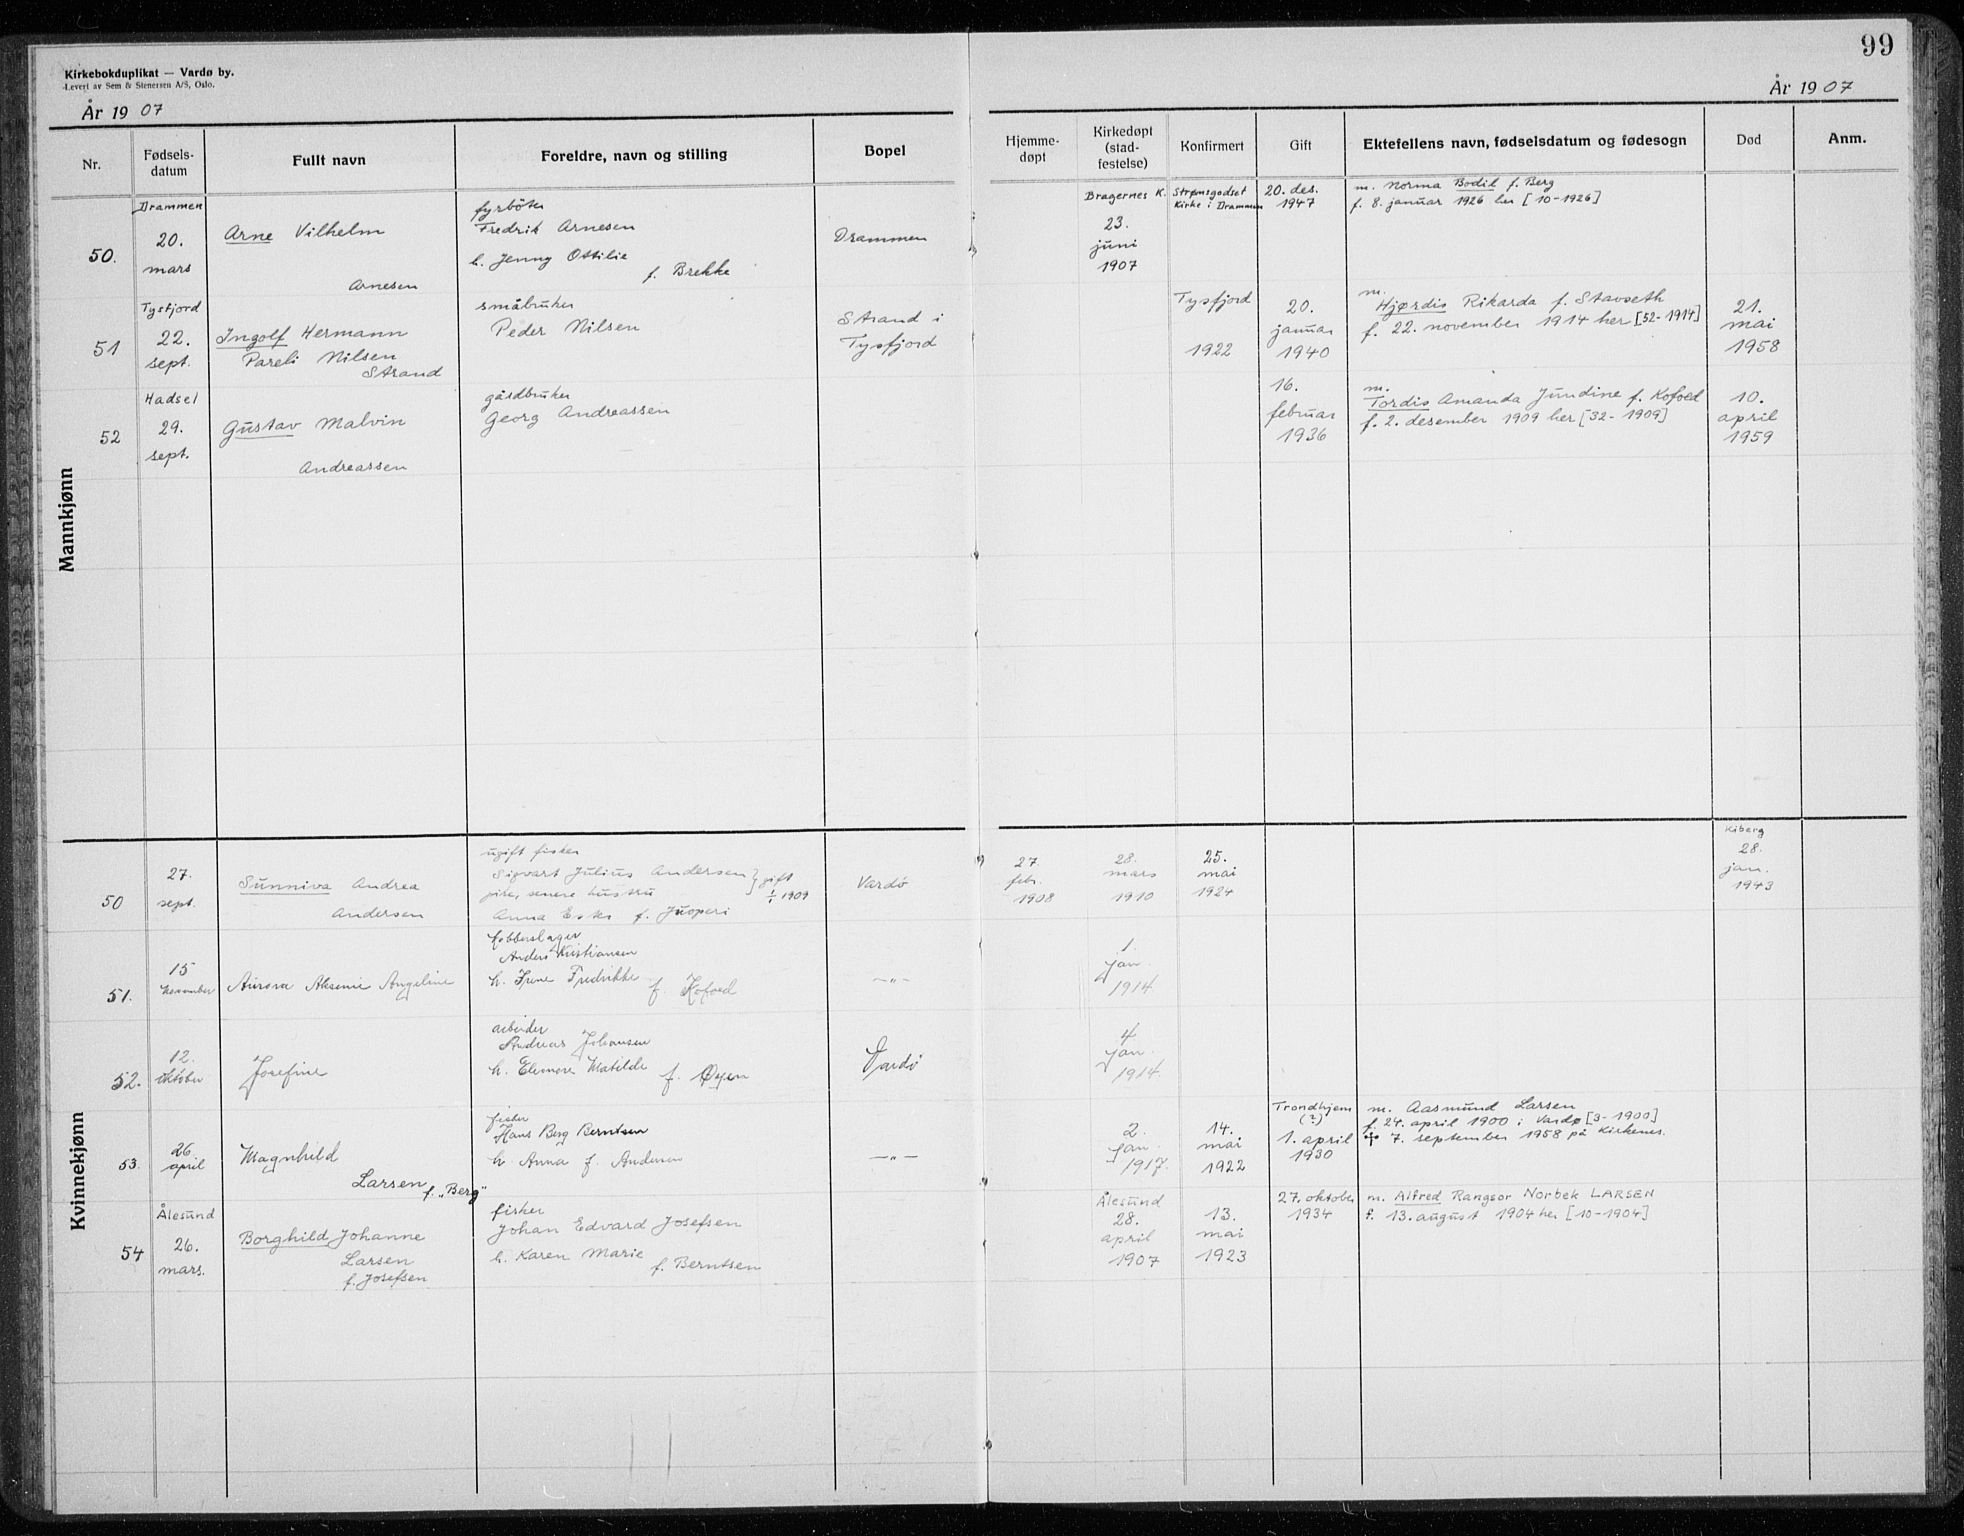 99
Kirkebokduplikat — Vardø by.
Levert av Sem & Stenersen A/S, Oslo.
År 1907
År 1907
Nr.
Fødsels-
datum
Fullt navn
Foreldre, navn og stilling
Bopel
Hjemme-
døpt
Kirkedøpt
(stad-
festelse)
Konfirmert
Gift
Ektefellens navn, fødselsdatum og fødesogn
Død
Anm.
Mannkjønn
50.
Drammen
20.
mars
Arne Vilhelm
Arnesen
fyrbøter
Fredrik Arnesen
h. Jenny Ottilie
f. Brekke
Drammen
Bragernes K.
23.
juni
1907
Strømsgodset
Kirke i Drammen
20. des.
1947
m. Norma Bodil f. Berg
f. 8. januar 1926 her [10-1926]
51
Tysfjord
22.
sept.
Ingolf Hermann
Pareli Nilsen
Strand
småbruker
Peder Nilsen
Strand i
Tysfjord
Tysfjord
1922
20.
januar
1940
m.
Hjørdis Rikarda f. Stavseth
f. 22. november 1914 her [52-1914]
21.
mai
1958
52
Hadsel
29.
sept.
Gustav Malvin
Andreassen
gårdbruker
Georg Andreassen
16.
februar
1936
m.
Tordis Amanda Jundine f. Kofoed
f. 2. desember 1909 her [32-1909]
10.
april
1959
Kvinnekjønn
50
27.
sept.
Sunniva Andrea
Andersen
ugift fisker
Sigvart Julius Andersen } gift
pike, senere hustru 1/1 1909
Anna f. Juoperi
Vardø
27
febr.
1908
28.
mars
1910
25.
mai
1924
Kiberg
28.
jan.
1943
51.
15
november
Aurora Aksenie Angeline
kobberslager
Anders Kristiansen
h. Irene Fredrikke
f. Kofoed
—"—
1.
jan.
1914.
52.
12.
oktober
Josefine
arbeider
Andreas Johansen
h. Elenore Matilde
f. Øyen
Vardø
4
jan.
1914.
53.
26.
april
Magnhild
Larsen f. "Berg"
fisker
Hans Berg Berntsen
h. Anna f. Andersen
—"—
2.
jan.
1917.
14.
mai
1922
Trondhjem
(?)
1. april
1930
m. Aasmund Larsen
f. 24. april 1900 i Vardø [3-1900]
+ 7. september 1958 på Kirkenes.
54
Ålesund
26.
mars.
Borghild Johanne
Larsen
f. Josefsen
fisker
Johan Edvard Josefsen
h. Karen Marie
f. Berntsen
Ålesund
28.
april
1907
13.
mai
1923
27. oktober
1934
m. Alfred Rangsor Norbek LARSEN
f. 13. august 1904 her [10-1904]